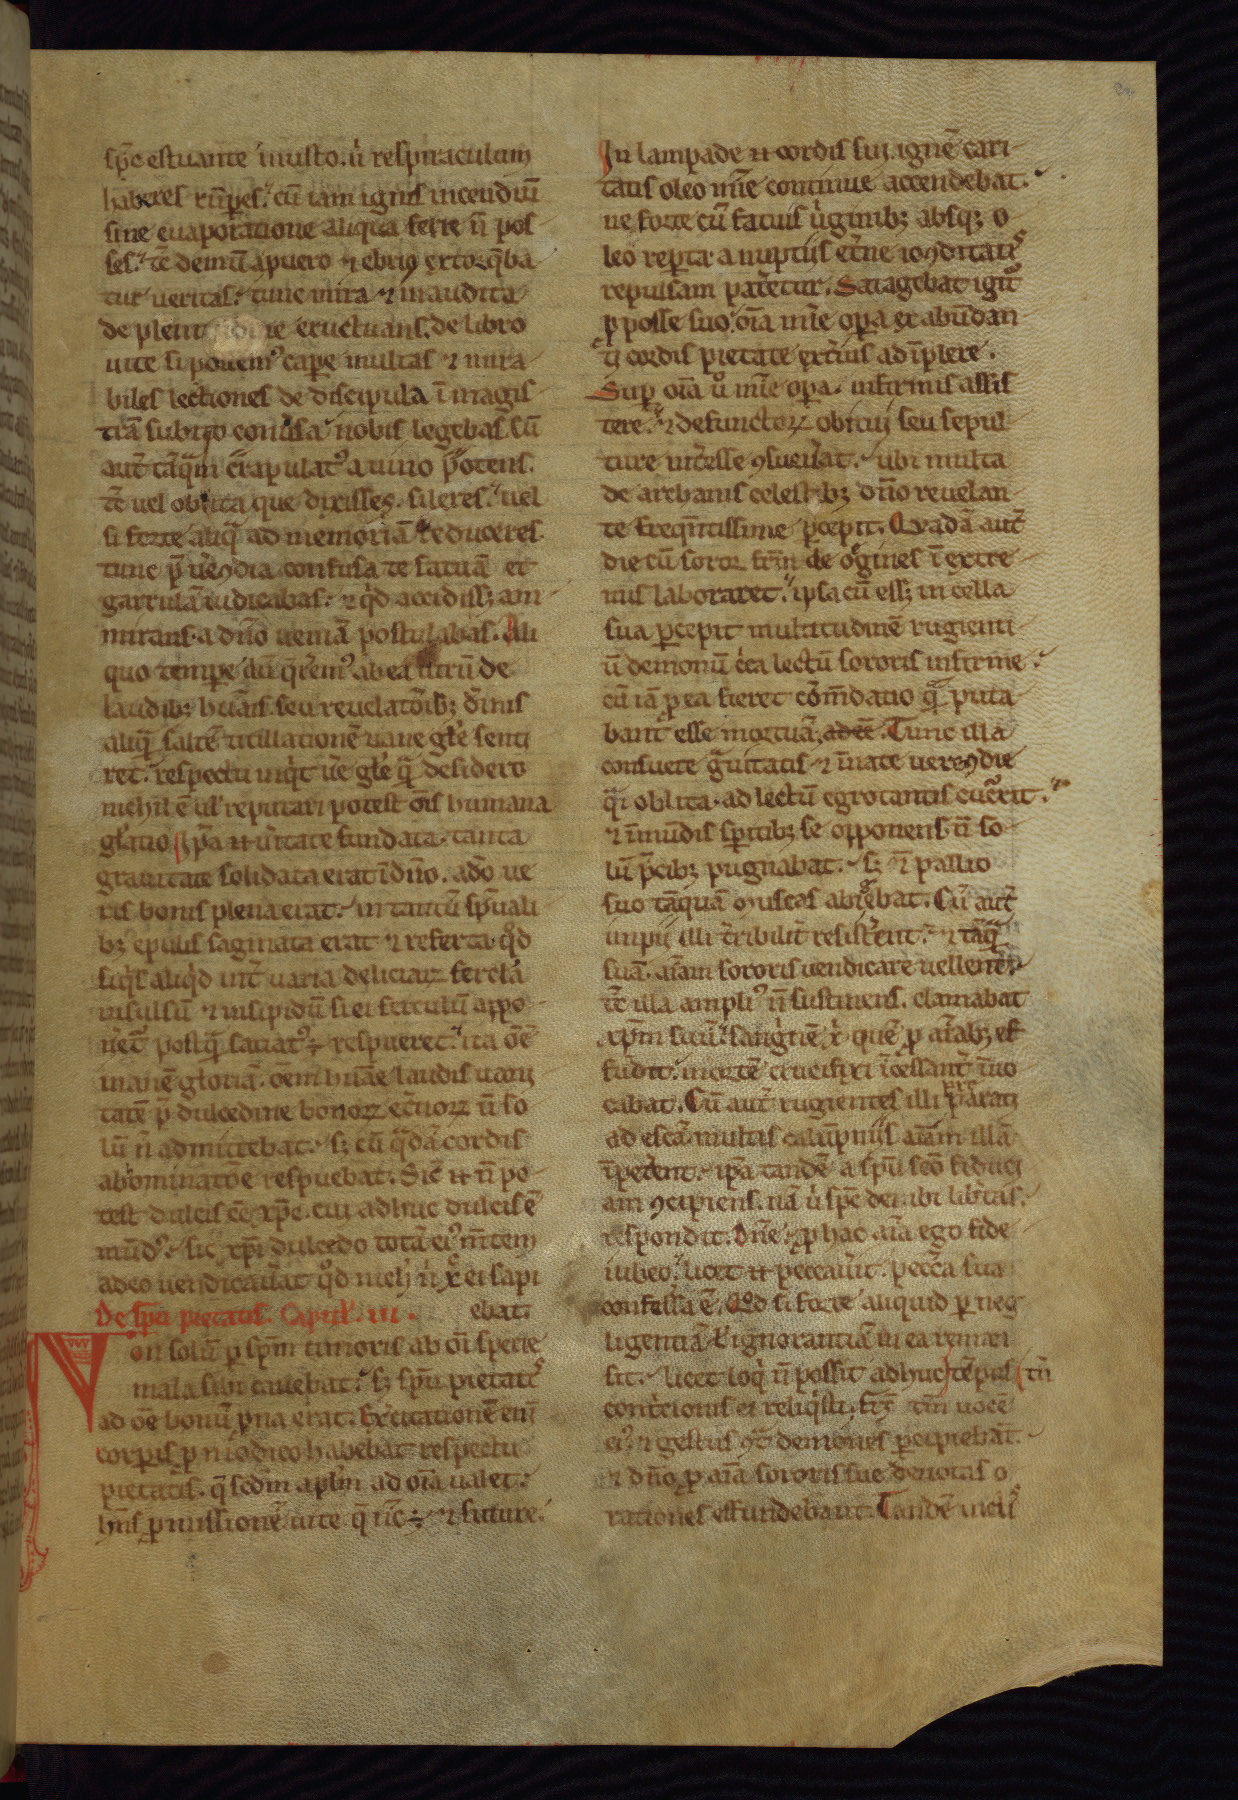 sp̄c estuante musto. ñ respiraculum
haberes rūpes. cū iam ignis incendiū
sine euaporatione aliqua ferre ñ pos
ses. tē demū a puero ⁊ ebrio extorq̄ba
tur ueritas. tunc mira ⁊ inaudita
de plenitudine eructuans. de libro
uite si ponem᷒ cape multas ⁊ mira
biles lectiones de discipula ī magis
trā subito conuersa nobis legebas. Cū
aut̄ tāq̄m c̄rapulat᷒ a uino p̄otens.
tē uel oblita que dixisses. sileres. uel
si forte aliq̄ ad memoriā reduceres.
tunc p̄ uerꝯdia confusa te fatuā et
garrulā iudicabas. ⁊ qd̄ accidissꝫ am
mirans. a dño ueniā postulabas. Ali
quo tempe cū q̄rem᷒ ab ea utrū de
laudibꝫ humīs. seu reuelatōibꝫ diīnis
aliq̄ saltē titillationē uane gl̄e senti
ret. respectu inqͥt ue gl̄e q̄ desidero
nichil ē ul̄ reputari potest oīs humana
gl̄atio. Ip̄a ⁊t ūitate fundata. tanta
grauitate solidata erat ī dño. adeo ue
ris bonis plena erat. in tantū sp̄uali
bꝫ epulis saginata erat ⁊ referta. qd̄
siqͥs aliqͥd int̄ uaria deliciaꝝ fercla
insulsū ⁊ insipidū si ei ferculū appo
ñet᷒ postq̄ saciat᷒ ÷ respueret. ita oē
inanē gloriā. oēm hūane laudis uani
tatē p̄ dulcedine bonoꝝ et̄noꝝ ñ so
lū ñ admittebat. sꝫ cū q̄dā cordis
abominatōe respuebat. Sic ⁊t ñ po
test dulcis ēe xp̄c. cui adhuc dulcis ē
mūd᷒. sic xp̄i dulcedo totā ei᷒ m̄tem
adeo uendicauat qd̄ nich̄ ñ xp̄ ei sapi
De sp̄u pietatis. Capitl̄. iii. ebat.
Non solū p sp̄m timoris ab oī specie
mala sibi cauebat. sꝫ sp̄u pietatꝭ
ad oē bonū p̄na erat. Ex̄citationē enī
corpis ꝓ modico habebat respectu
pietatis. q̄ scd̄m aplm ad oīa ualet.
hñs ꝓmissionē uite q̄ nc̄ ÷ ⁊ future.
In lampade ⁊t cordis sui. ignē cari
tatis oleo mīe continue accendebat.
ne forte cū fatuis ūginibꝫ absqꝫ o
leo repta. a nuptiis et̄ne iocūditatꝭ
repulsam pateret᷒. Satagebat igit᷒
p posse suo. oīa mīe opa ex abūdan
ti cordis pietate ext̄ius adīplere.
Sup oīa ū mīe opa. infirmis assis
tere. ⁊ defunctoꝝ obitui seu sepul
ture int̄esse ꝯsueuat. ubi multa
de archanis celestibꝫ dño reuelan
te freqn̄tissime pcepit. Quadā aut̄
die cū soror fr̄m de ogines ī extre
mis laboraret. ipsa cū essꝫ in cella
sua pcepit multitudinē rugienti
ū demonū c̄ca lectū sororis infirme.
cū iā p ea fieret cōm̄datio q̄ puta
bant esse mortuā. Tunc illa
consuete ḡuitatis ⁊ īnate uereꝯdie
q̄i oblita. ad lectū egrotantis cucrit.
⁊ īmūdis sp̄itibꝫ se opponens. ñ so
lū p̄cibꝫ pugnabat. sꝫ ⁊t pallio
suo tāquā muscas abigebat. Cū aut̄
impii illi t̄ribilit̄ resist̄ent. ⁊ tāq̄
suā. aīam sororis uendicare uellent.
tē illa ampli᷒ ñ sustinens. clamabat
xp̄m suū. sanguinē xp̄i quē p aīabꝫ ef
fudit. mortē crucifixi īcessant̄ īuo
cabat. Cū aut̄ rugientes illi parati
ad escā multis calūpniis aīam illā
īpetent. ip̄a tandē a sp̄u sc̄o fiduci
am ꝯcipiens. nā ū sp̄c dei. ibi lib̄tas.
respondit. Dñe. p hac aīa ego fide
iubeo. licet ⁊t peccauit. pecc̄a sua
confessa ē. Qd̄ si forte aliquid p neg
ligentiā l ignorantiā in ea reman
sit. licet loqͥ ñ possit adhuc tn̄ tēpus
contricionis ei reliqͥsti. Et tn̄ uocē
ei᷒ ⁊ gestus ꝯt̄ demones pcipiebat.
⁊ dño p aīa sororis sue deuotas o
rationes effundebant. Tandē meli᷒